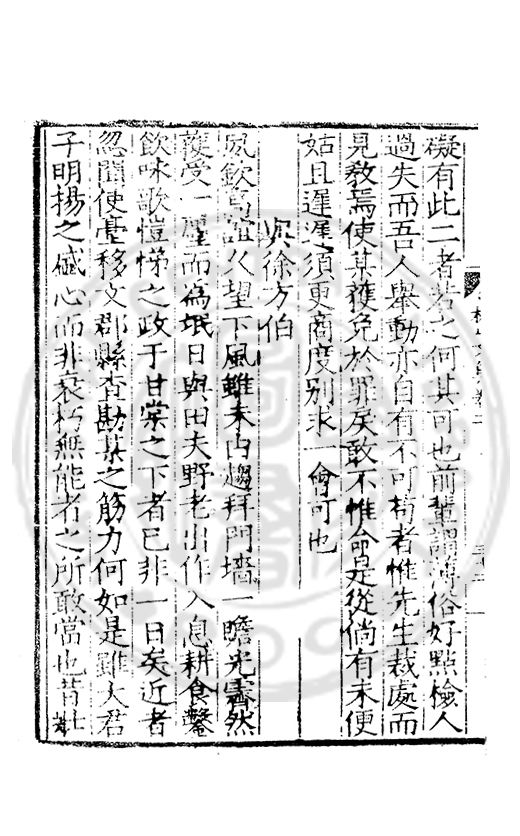 礙有此二者若之何其可也前輩謂薄俗好點檢人
過失而吾人舉動亦自有不可苟者惟先生裁處而
見教焉使某獲免於罪戾敢不惟命是從倘有未便
姑且遲遲須更商度別求一會可也
與徐方伯
夙欽高誼久望下風雖未由趨拜門墻一瞻光霽然
獲受一廛而為氓日與田夫野老出作入息耕食鑿
飲咏歌愷悌之政于甘棠之下者已非一日矣近者
忽聞使臺移文郡縣查勘某之筋力何如是雖大君
子明揚之盛心而非衰朽無能者之所敢當也昔杜